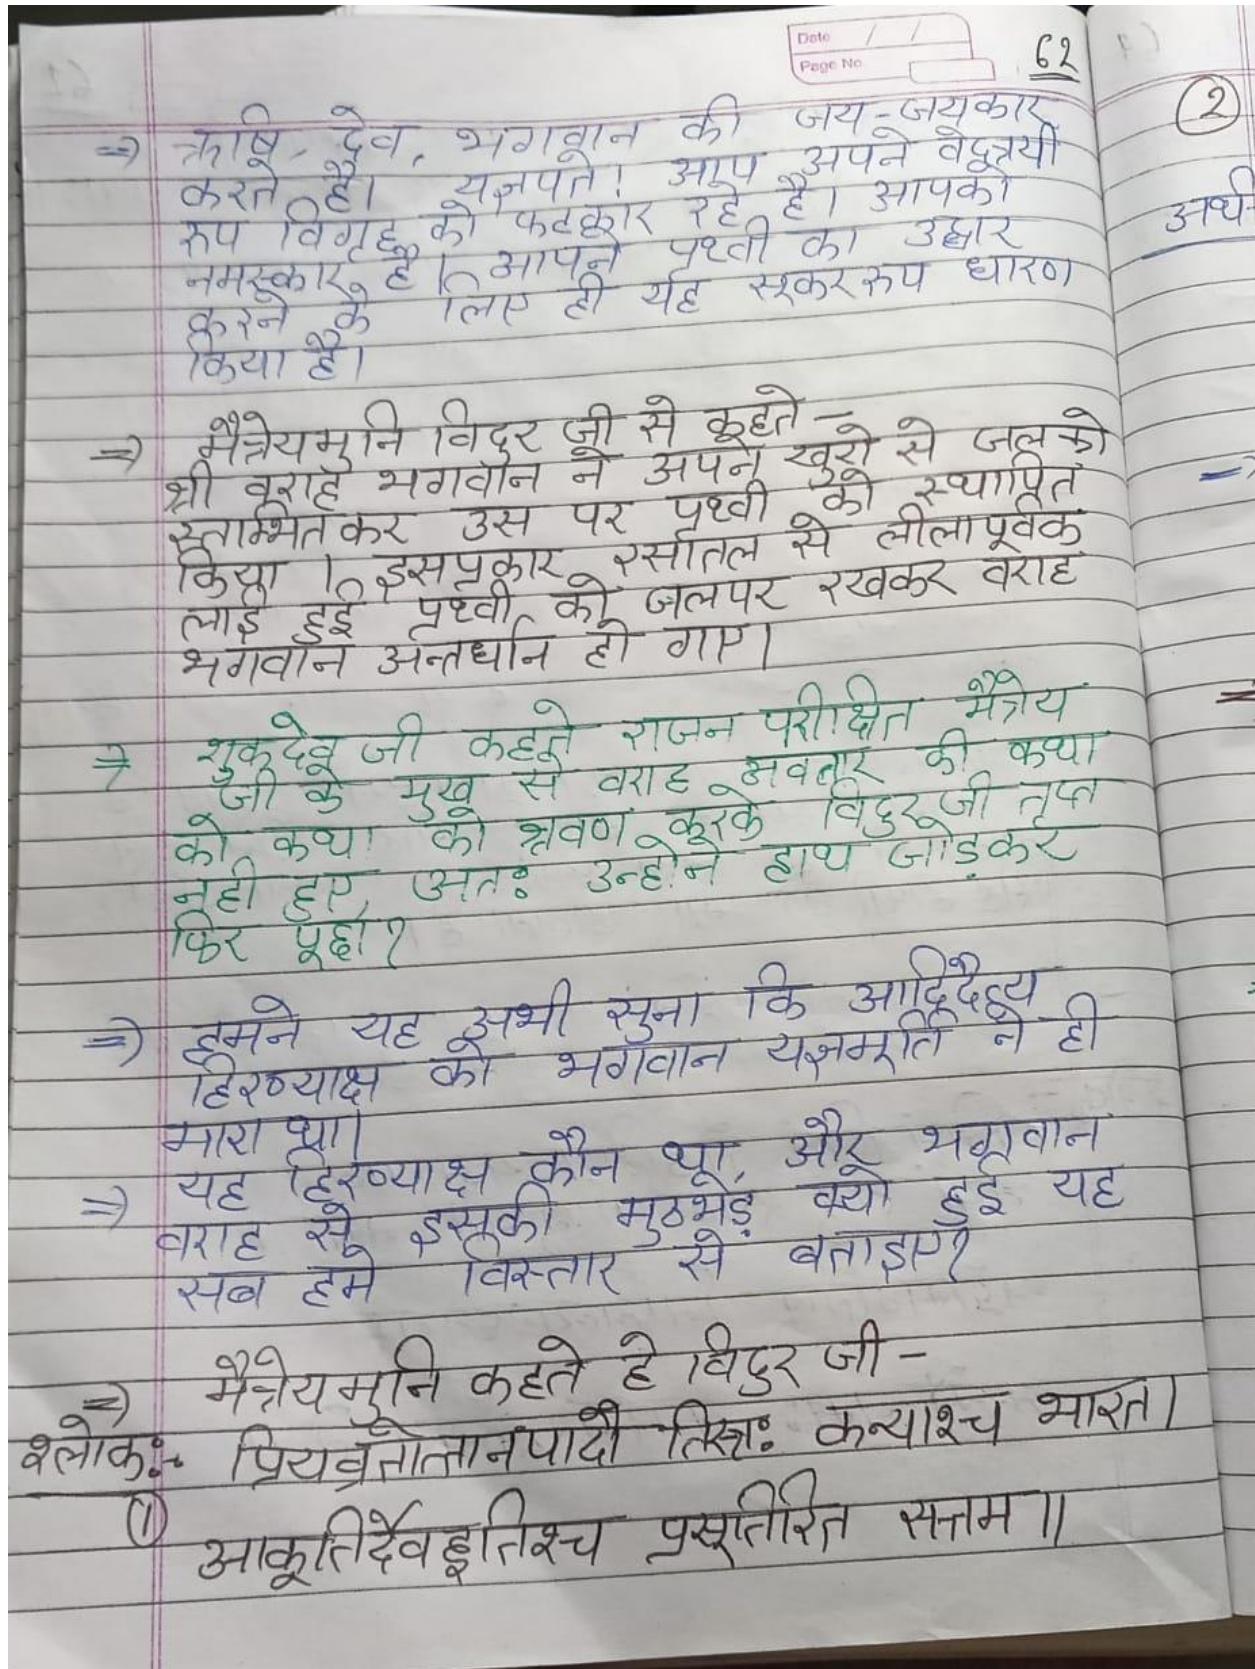 Date / /
Page No
62
⇒ ऋषि, देव, भगवान की जय-जयकार
करते है। यज्ञपते! आप अपने वेदत्रयी
रुप विग्रह को फटकार रहे है। आपको
नमस्कार है। आपने प्रथ्वी का उद्धार
करने के लिए ही यह सूकर रुप धारण
किया है।
⇒ मैत्रेयमुनि विदुर जी से कहते -
श्री वराह भगवान ने अपने खुरो से जल को
स्तम्भित कर उस पर प्रथ्वी को स्थापित
किया। इसप्रकार रसातल से लीलापूर्वक
लाई हुई प्रथ्वी को जलपर रखकर वराह
भगवान अन्तर्धान हो गाए।
⇒ शुकदेव जी कहते राजन परीक्षित मैत्रेय
जी के मुख से वराह अवतार की कथा
को कथा को श्रवण करके विदुर जी तृप्त
नही हुए, अतः उन्होने हाथ जोड़कर
फिर पूछा?
⇒ हमने यह अभी सुना कि आदिदैत्य
हिरण्याक्ष को भगवान यज्ञमूर्ति ने ही
मारा था।
⇒ यह हिरण्याक्ष कौन था, और भगवान
वराह से इसकी मुठभेड़ क्यो हुई यह
सब हमे विस्तार से बताइए?
⇒ मैत्रेयमुनि कहते हे विदुर जी -
श्लोक:- प्रियव्रतोत्तानपादौ तिस्त्रः कन्याश्च भारत।
① आकूतिर्देवहूतिश्च प्रसूतिरिति सत्तम॥
②
अर्थ
⇒